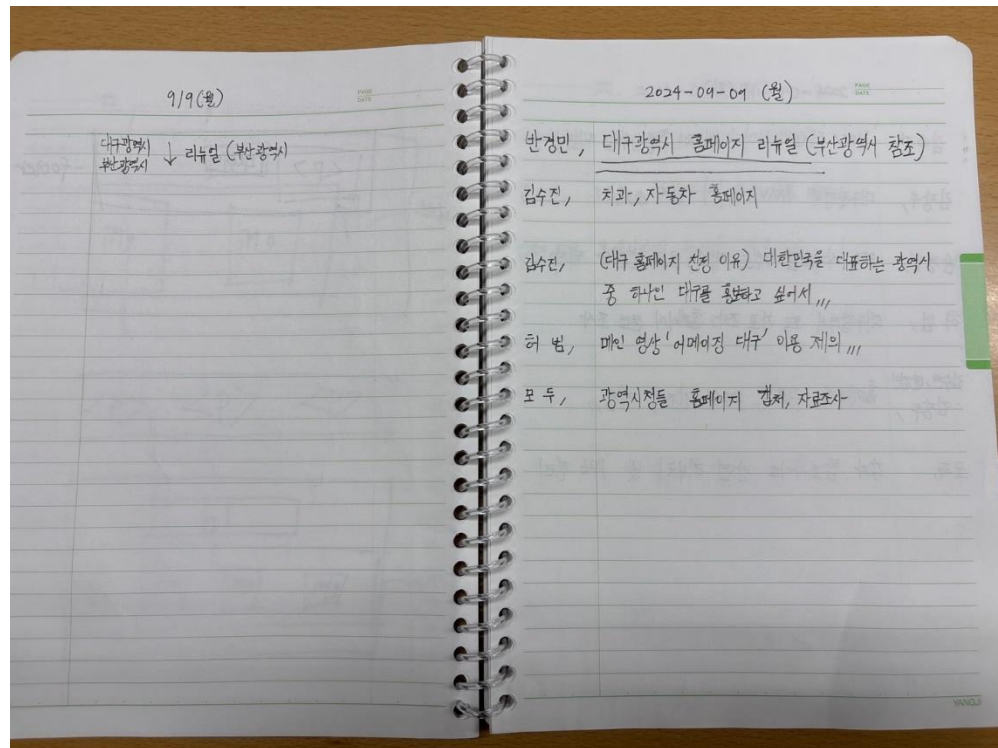 9/9(월)
대구광역시
부산광역시 ↓ 리뉴얼 (부산광역시
PAGE
DATE
2024-09-09 (월)
PAGE
DATE
반경민, 대구광역시 홈페이지 리뉴얼 (부산광역시 참조)
김수진, 치과, 자동차 홈페이지
김수진, (대구 홈페이지 선정 이유) 대한민국을 대표하는 광역시
중 하나인 대구를 홍보하고 싶어서,,,
허범, 메인 영상 '어메이징 대구' 이용 제의,,,
모두, 광역시청들 홈페이지 캡처, 자료조사